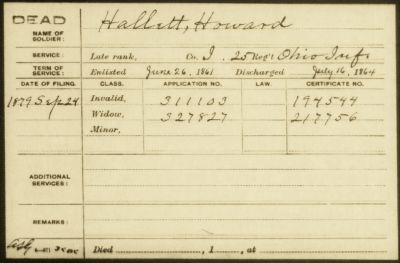 DEAD
NAME OF SOLDIER: Hallett, Howard
SERVICE: Late rank, Co. I, 25 Reg't Ohio Inf.
TERM OF SERVICE: Enlisted June 26, 1861 Discharged July 16, 1864
DATE OF FILING. CLASS. APPLICATION NO. LAW. CERTIFICATE NO.
1879 Sep 24 Invalid, 311103 194544
Widow, 327827 217756
Minor,
ADDITIONAL SERVICES:
REMARKS:
Died , 1 , at